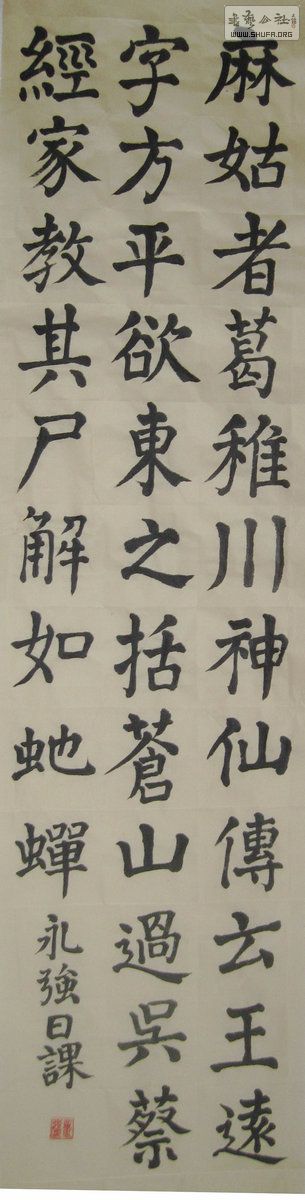 麻姑者葛稚川神仙傳云王遠
字方平欲東之括蒼山過吳蔡
經家教其尸解如虵蟬
永強日課
WWW.SHUFA.ORG